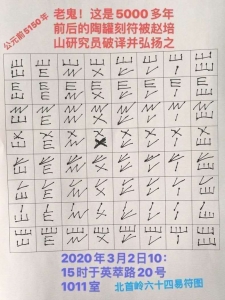 老鬼！这是5000多年
前后的陶罐刻符被赵培
山研究员破译并弘扬之
公元前5150年
2020年3月2日10：
15时于英萃路20号
1011室
北首岭六十四易符图